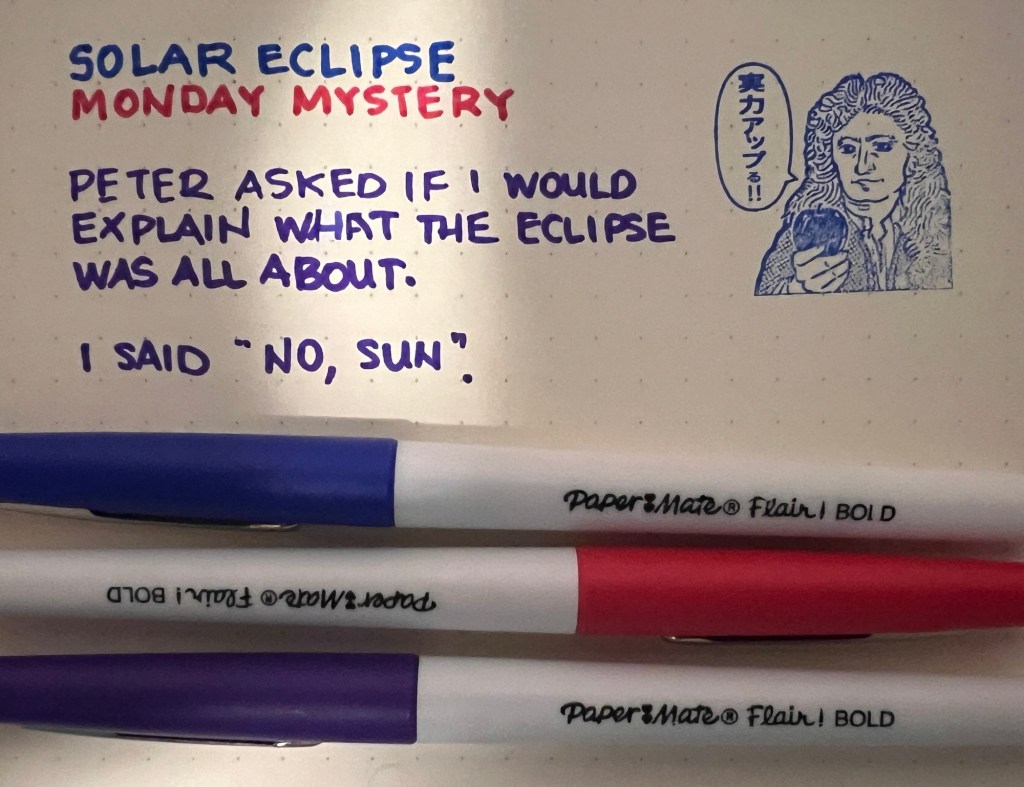 SOLAR ECLIPSE
MONDAY MYSTERY
PETER ASKED IF I WOULD
EXPLAIN WHAT THE ECLIPSE
WAS ALL ABOUT.
I SAID "NO, SUN".
実力アップる!!
Paper:Mate® Flair! BOLD
Paper:Mate® Flair! BOLD
Paper:Mate® Flair! BOLD